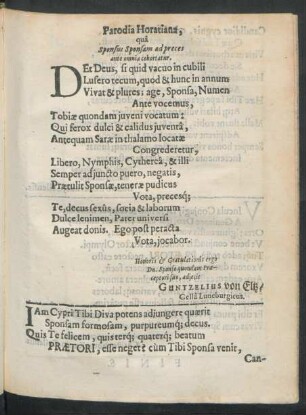 Parodia Horatiana,
quâ
Sponsus Sponsam ad preces
ante omnia cohortatur.
DEt Deus, si quid vacuo in cubili
Lusero tecum, quod & hunc in annum
Vivat & plures: age, Sponsa, Numen
Ante vocemus,
Tobiæ quondam juveni vocatum:
Qui ferox dulci & calidus juventâ,
Antequam Saræ in thalamo locatæ
Congrederetur,
Libero, Nymphis, Cythereâ, & illi
Semper adjuncto puero, negatis,
Prætulit Sponsæ, teneræ pudicus
Vota, precesq;
Te, decus sexûs, soria & laborum
Dulce lenimen, Pater universi
Augeat donis. Ego post peracta
Vota, jocabor.
Honoris & Gratulationis ergò
Dn. Sponso quondam Præ-
ceptori suo, adjecit
GUNTZELIUS von Eltz/
Cellâ Luneburgicus.
IAm Cypri Tibi Diva potens adjungere quærit
Sponsam formosam, purpureumq; decus.
Quis Te felicem, quis terq; quaterq; beatum
PRÆTORI, esse neget? cùm Tibi Sponsa venit,
Can-